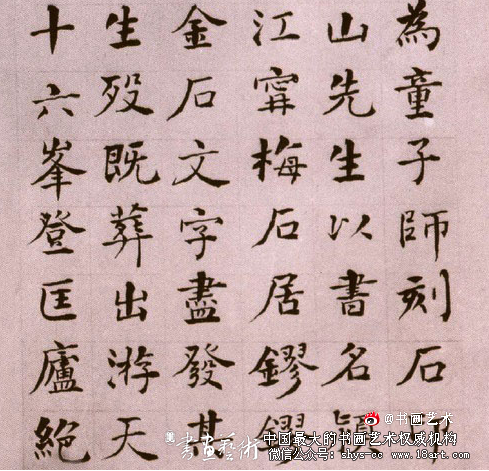 為童子師刻石
山先生以書名
江甯梅石居鏐鏐
金石文字盡發其
生歿既葬出游天
十六峯登匡廬絕
@书画艺术
書畫藝術
中国最大的书画艺术权威机构
微信公众号: shys-cc www.18art.com